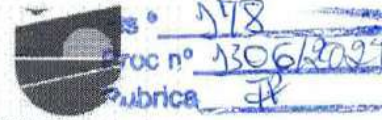 s º 178
Proc nº 1306/202
Rubrica